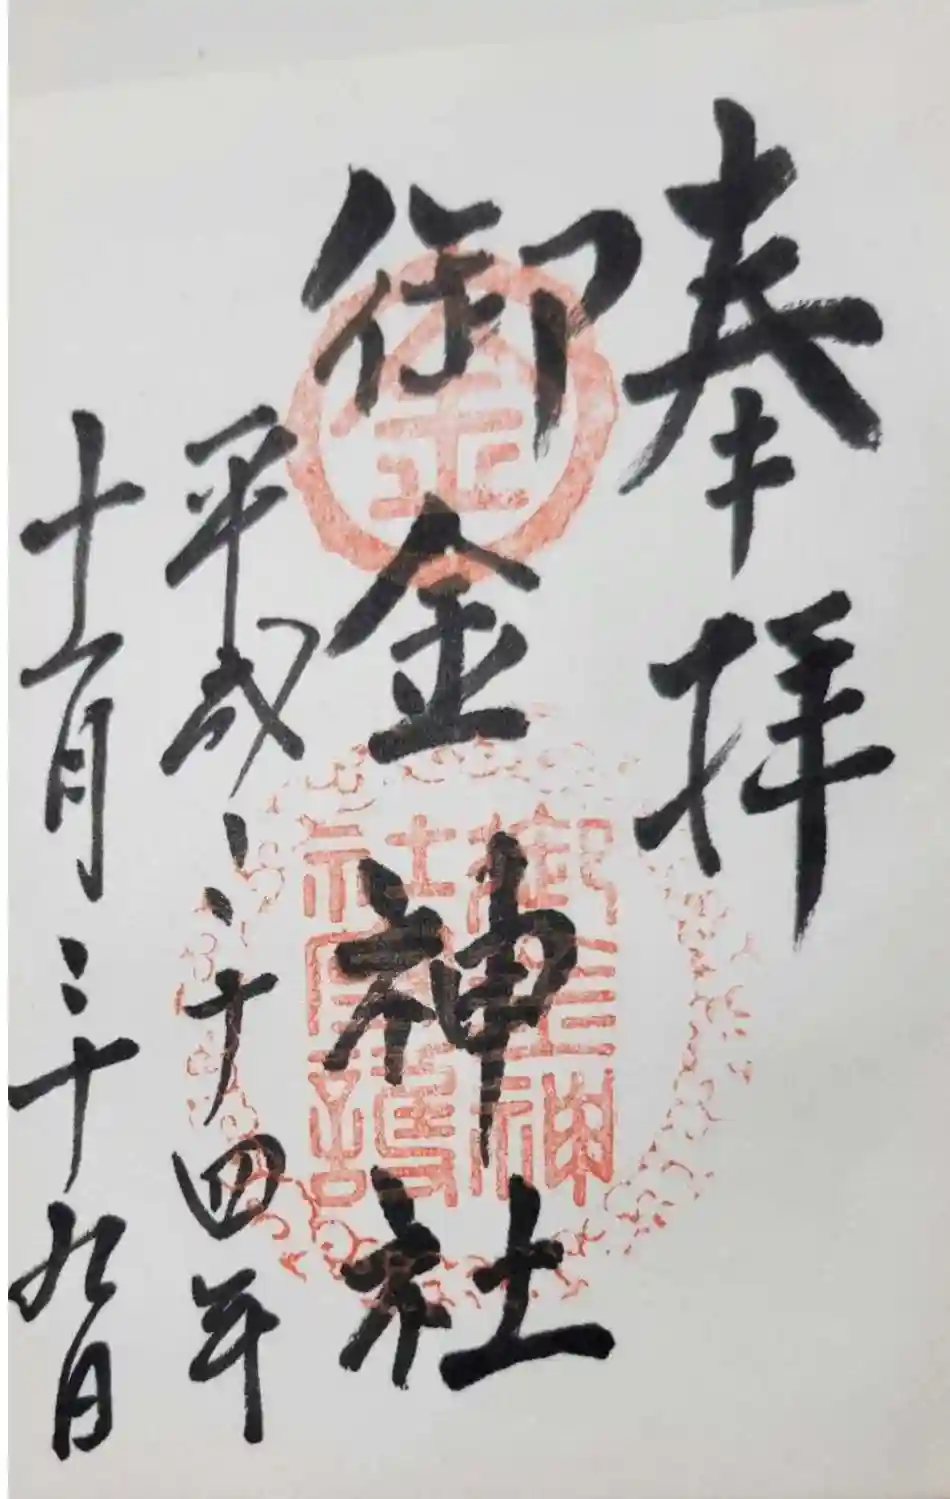 奉拝
御金神社
平成二十四年
十一月二十九日
金
御金神
社